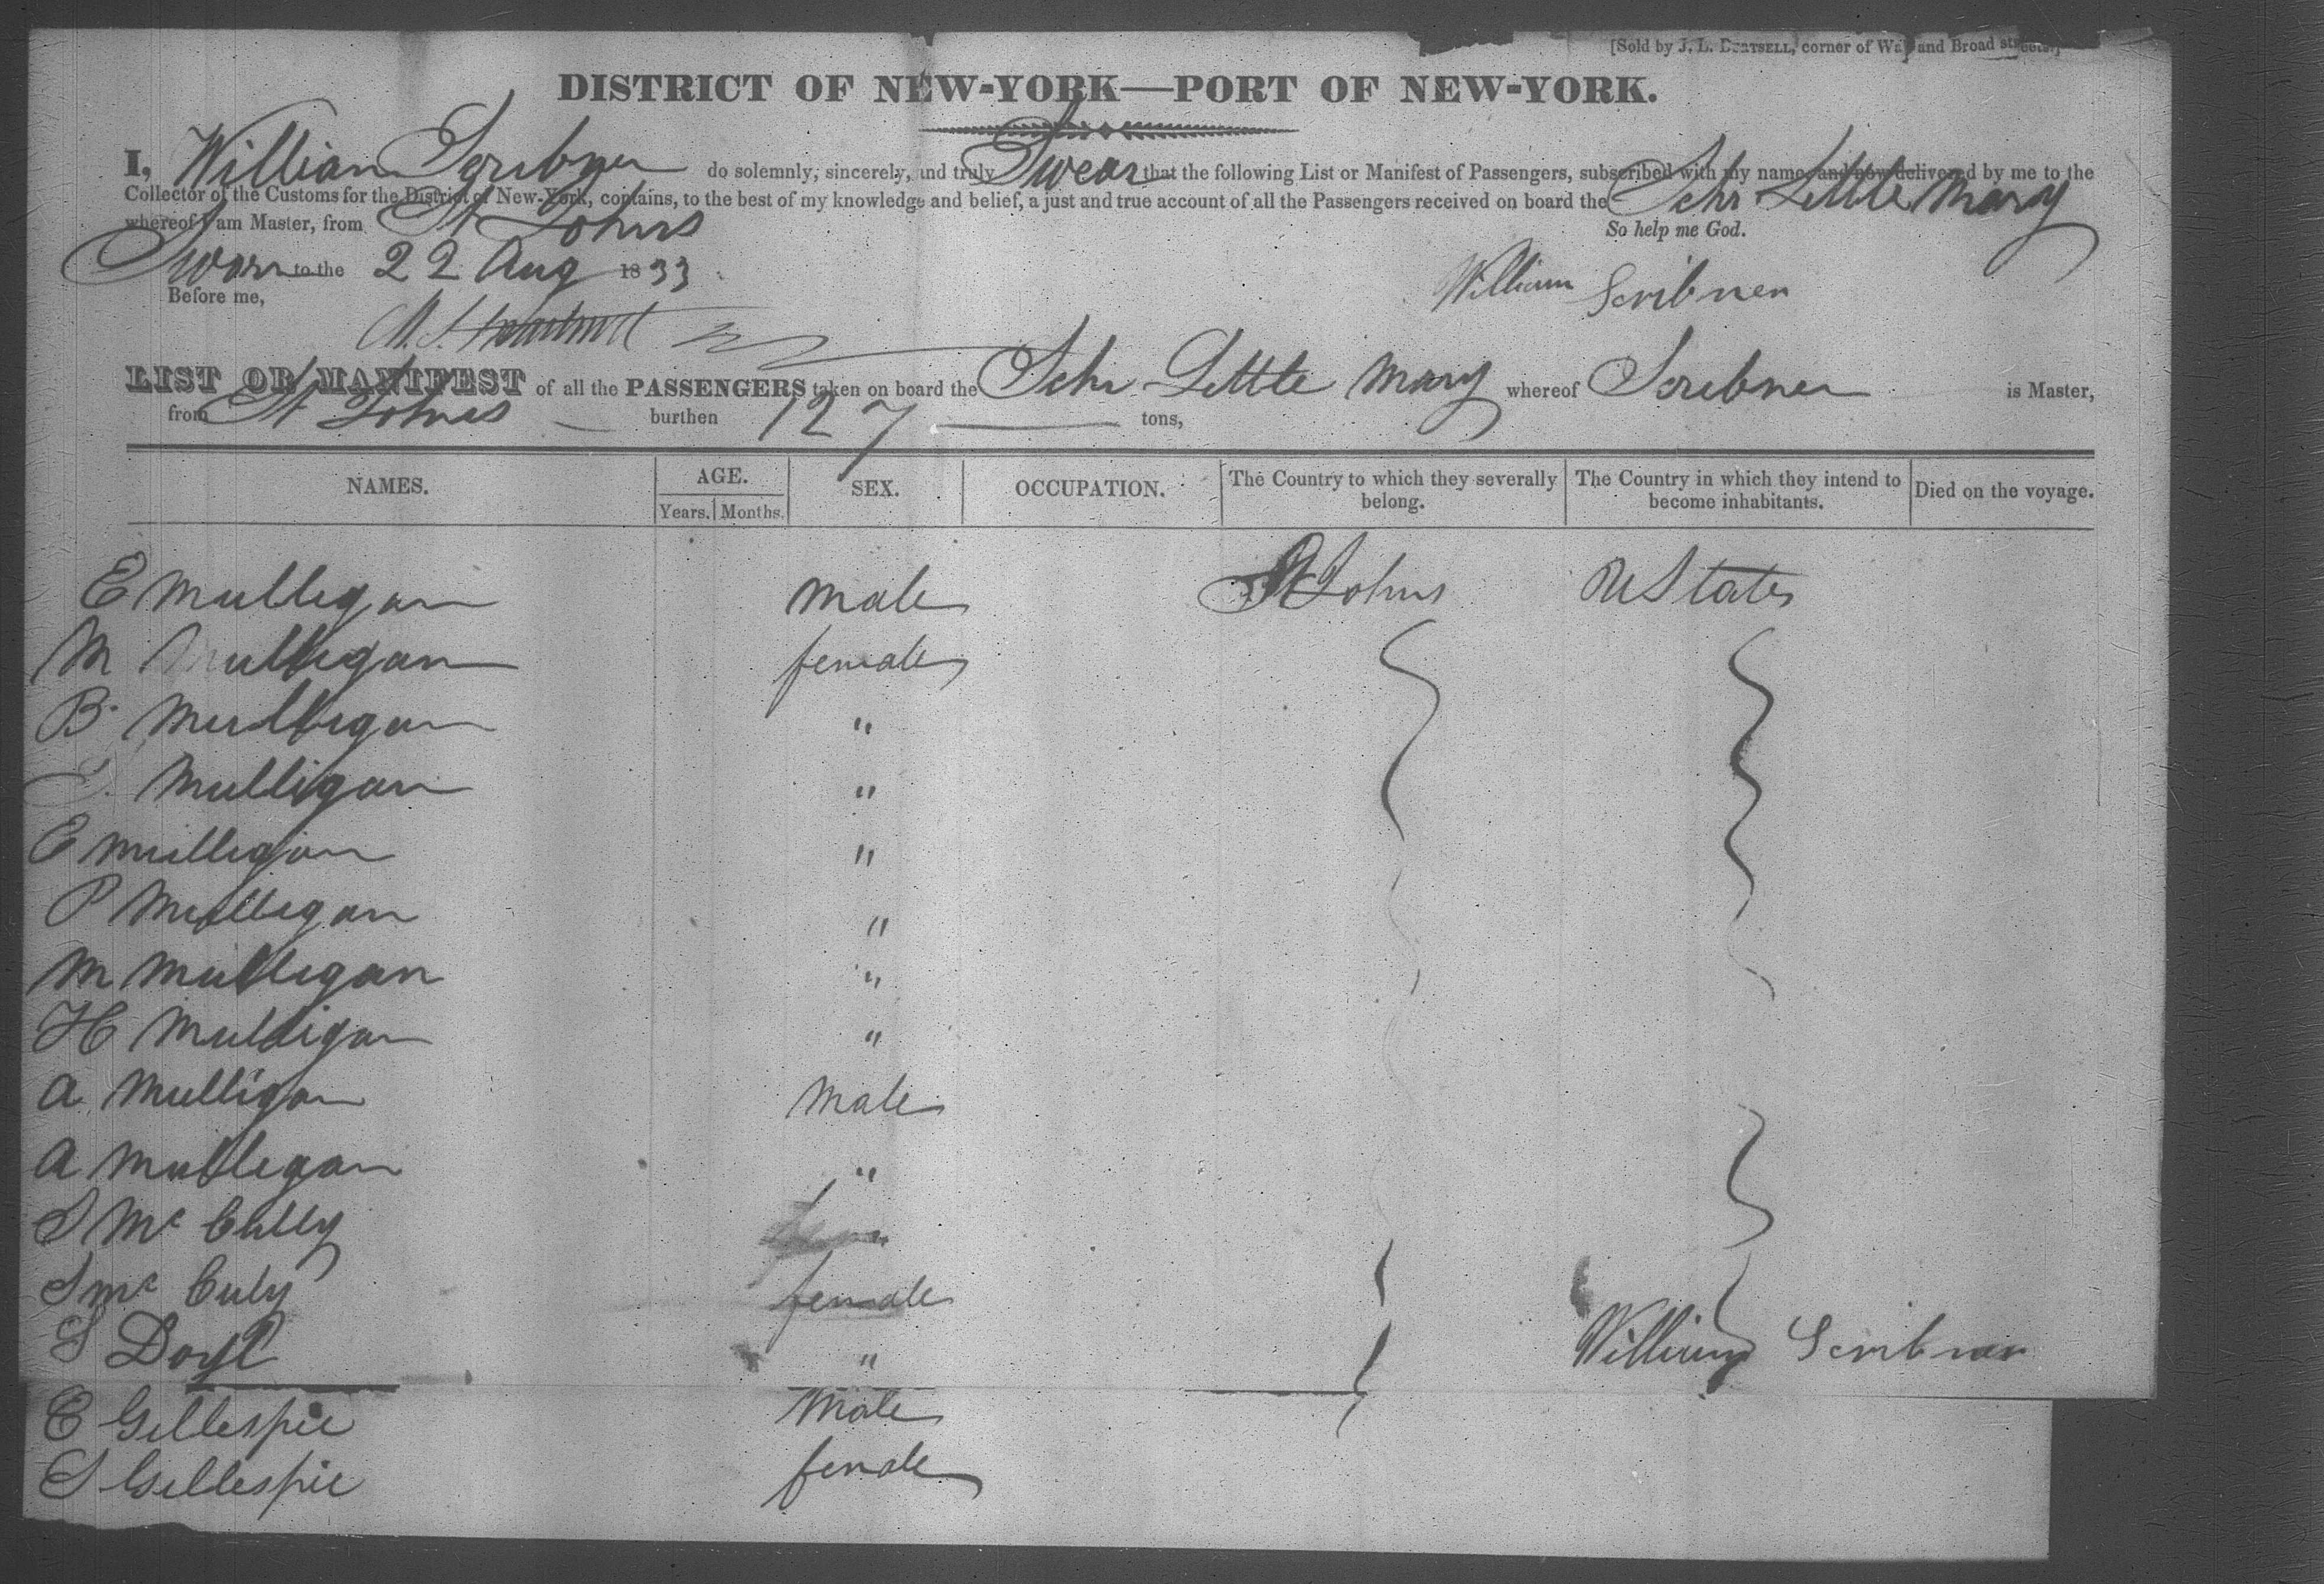 [Sold by J. L. corner of Wall and Broad streets.]
DISTRICT OF NEW-YORK—PORT OF NEW-YORK.
I, William Scribner do solemnly, sincerely, and truly Swear that the following List or Manifest of Passengers, subscribed with my name, and now delivered by me to the
Collector of the Customs for the District of New-York, contains, to the best of my knowledge and belief, a just and true account of all the Passengers received on board the Schr Little Mary
whereof I am Master, from St Johns So help me God.
Sworn to the 22 Aug 1833
William Scribner
Before me,
LIST OR MANIFEST of all the PASSENGERS taken on board the Schr Little Mary whereof Scribner is Master,
from St Johns burthen 127 tons,
NAMES. AGE. Years. Months. SEX. OCCUPATION. The Country to which they severally belong. The Country in which they intend to become inhabitants. Died on the voyage.
E Mulligan male St Johns U States
M Mulligan female
B. Mulligan "
Mulligan "
E Mulligan "
P Mulligan "
M Mulligan "
H Mulligan "
A Mulligan Male
A Mulligan "
S Mc Cully "
S Mc Culy female
S Doyl "
William Scribner
E Gillespie Male
S Gillespie female